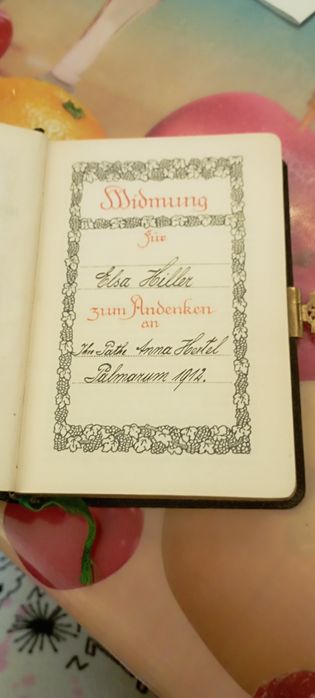 Widmung
für
Elsa Hiller
zum Andenken
an
Ihre Pathe Anna Hertel
Palmarum 1912.